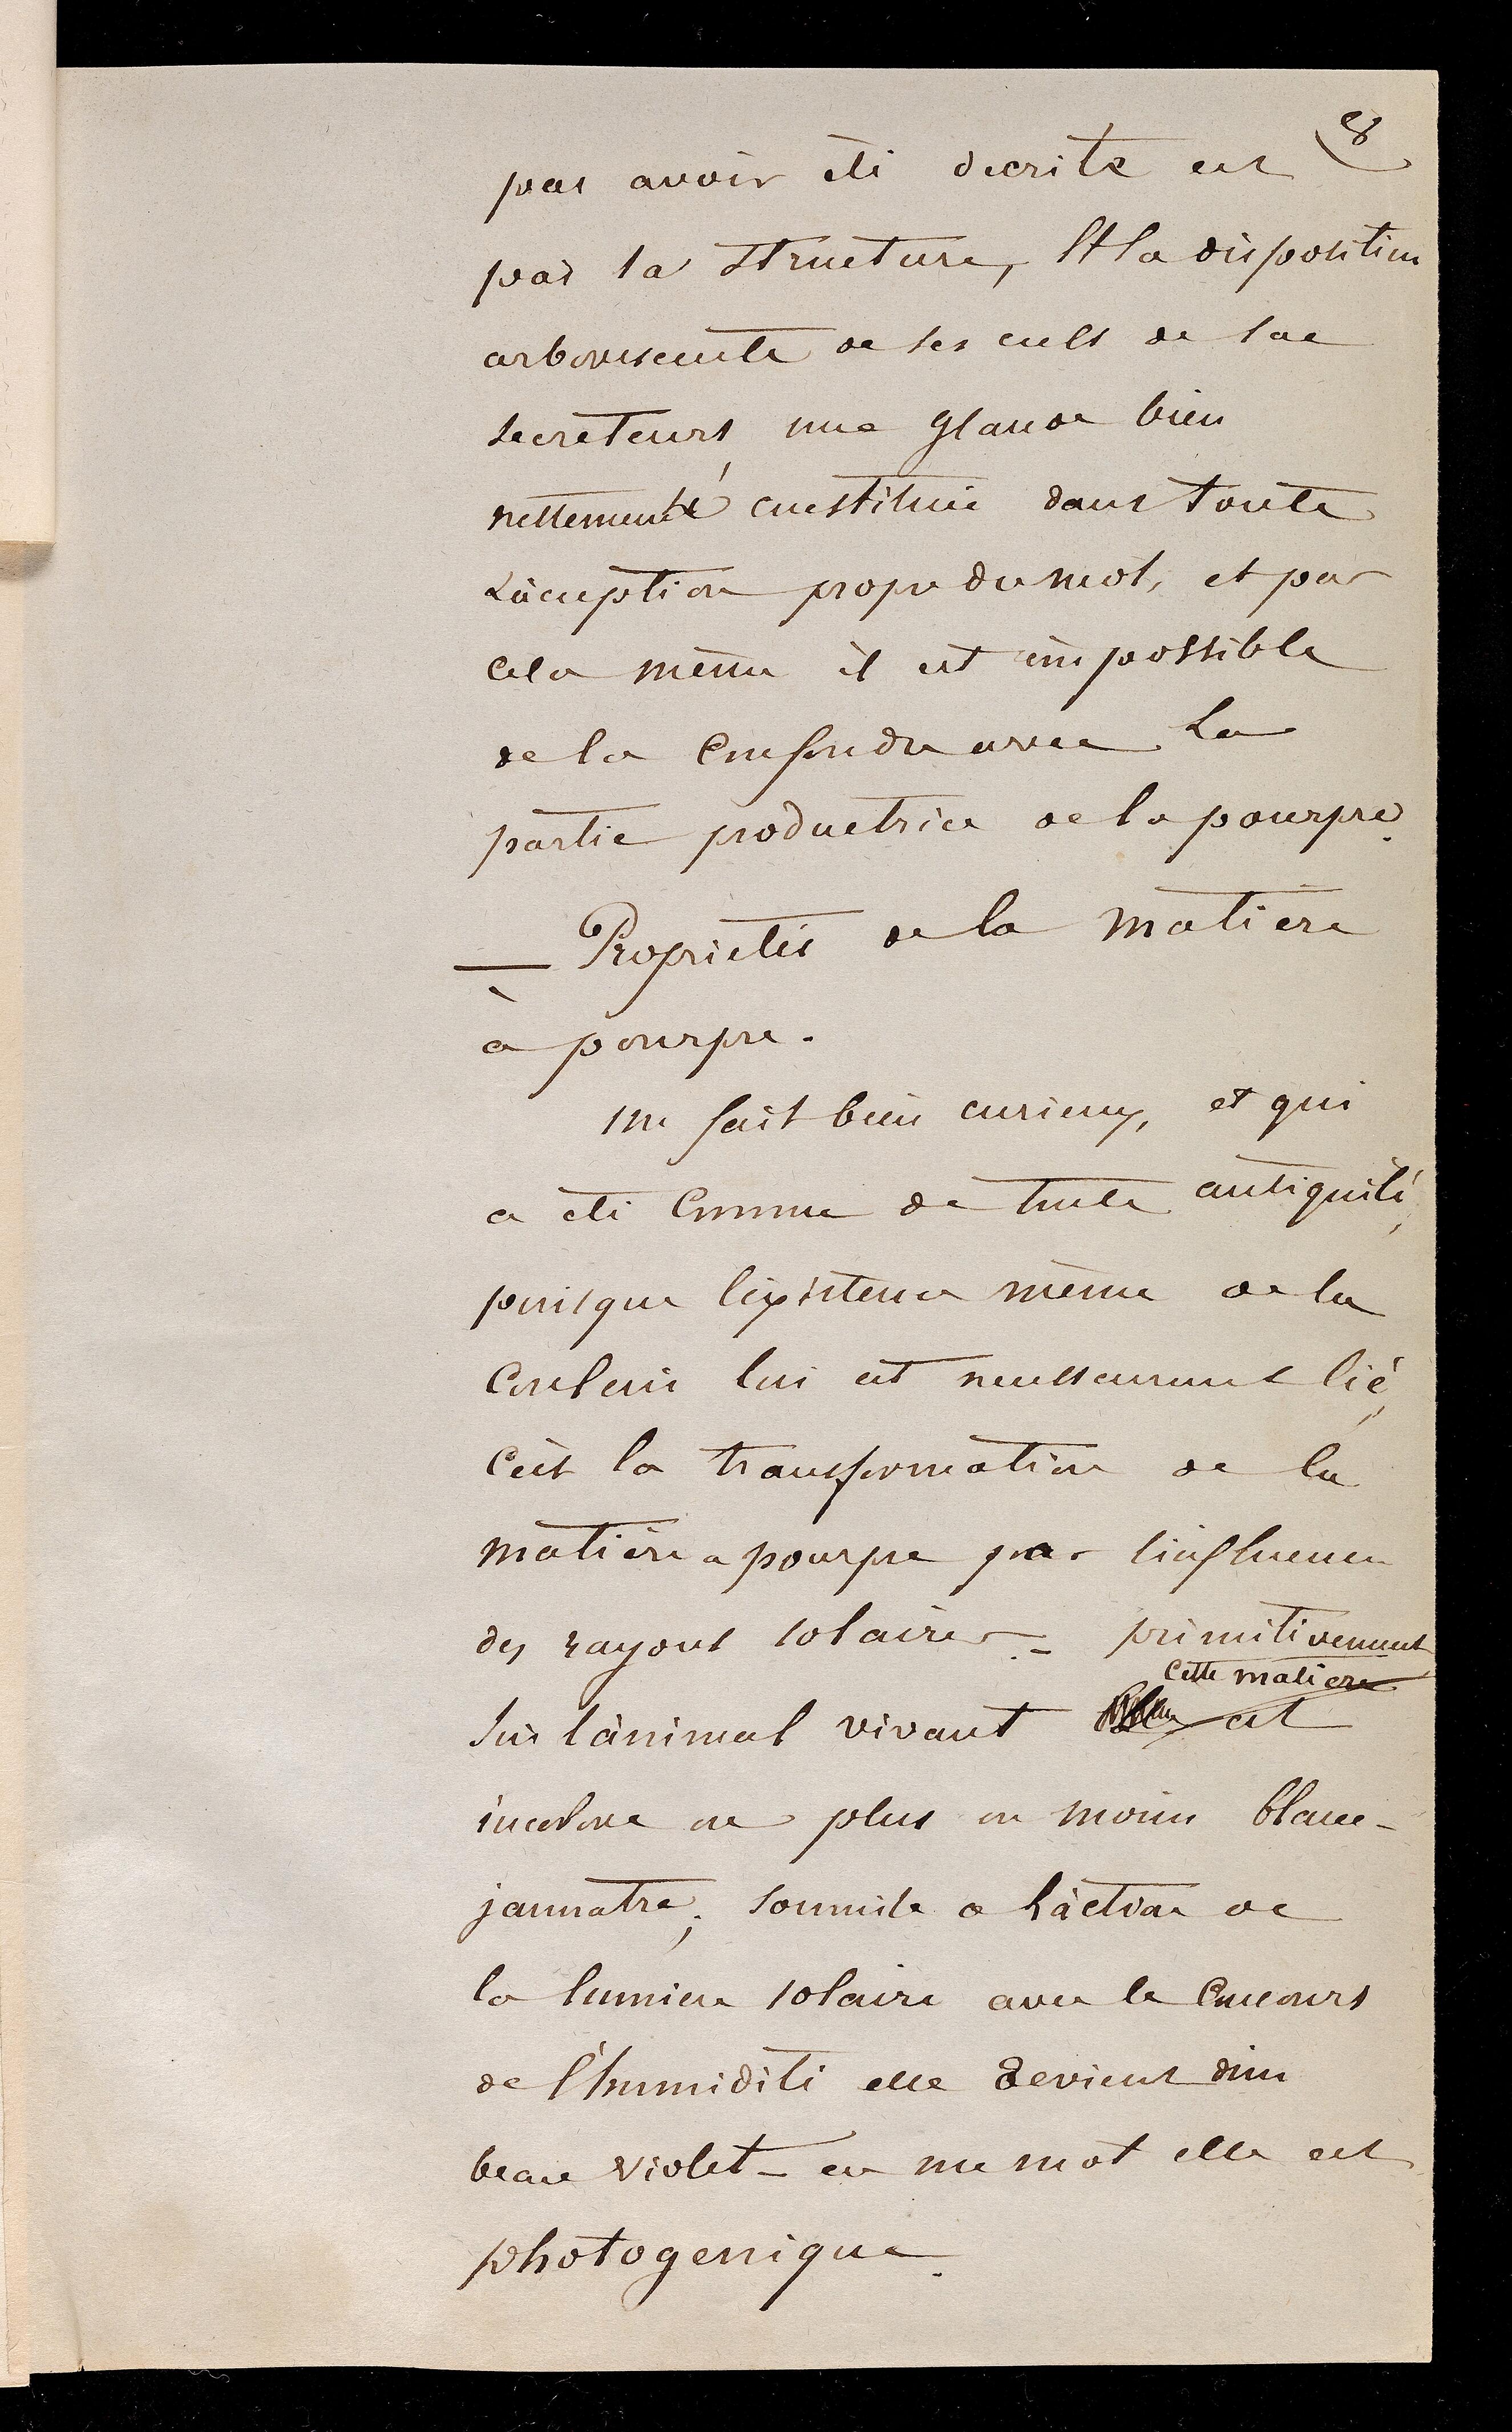 8
pas avoir été decrite est
par sa structure, et la disposition
arborescente de ses culs de sac
secreteurs, une glande bien
nettement constituée dans toute
L'acception propre du mot, et par
cela même il est impossible
de la confondre avec La
partie productrice de la pourpre.
— Propriétés de la matière
à pourpre.
un fait bien curieux, et qui
a été connu de toute antiquité,
puisque l'existence même de la
couleur lui est necessairement lié,
c'est la transformation de la
matière a pourpre par l'influence
des rayons solaires. — primitivement
cette matiere
sur l'animal vivant est
incolore ou plus ou moins blanc-
jaunatre; soumise a L'action de
la lumiere solaire avec le concours
de l'humidité elle devient d'un
beau violet — en un mot elle est
photogenique.